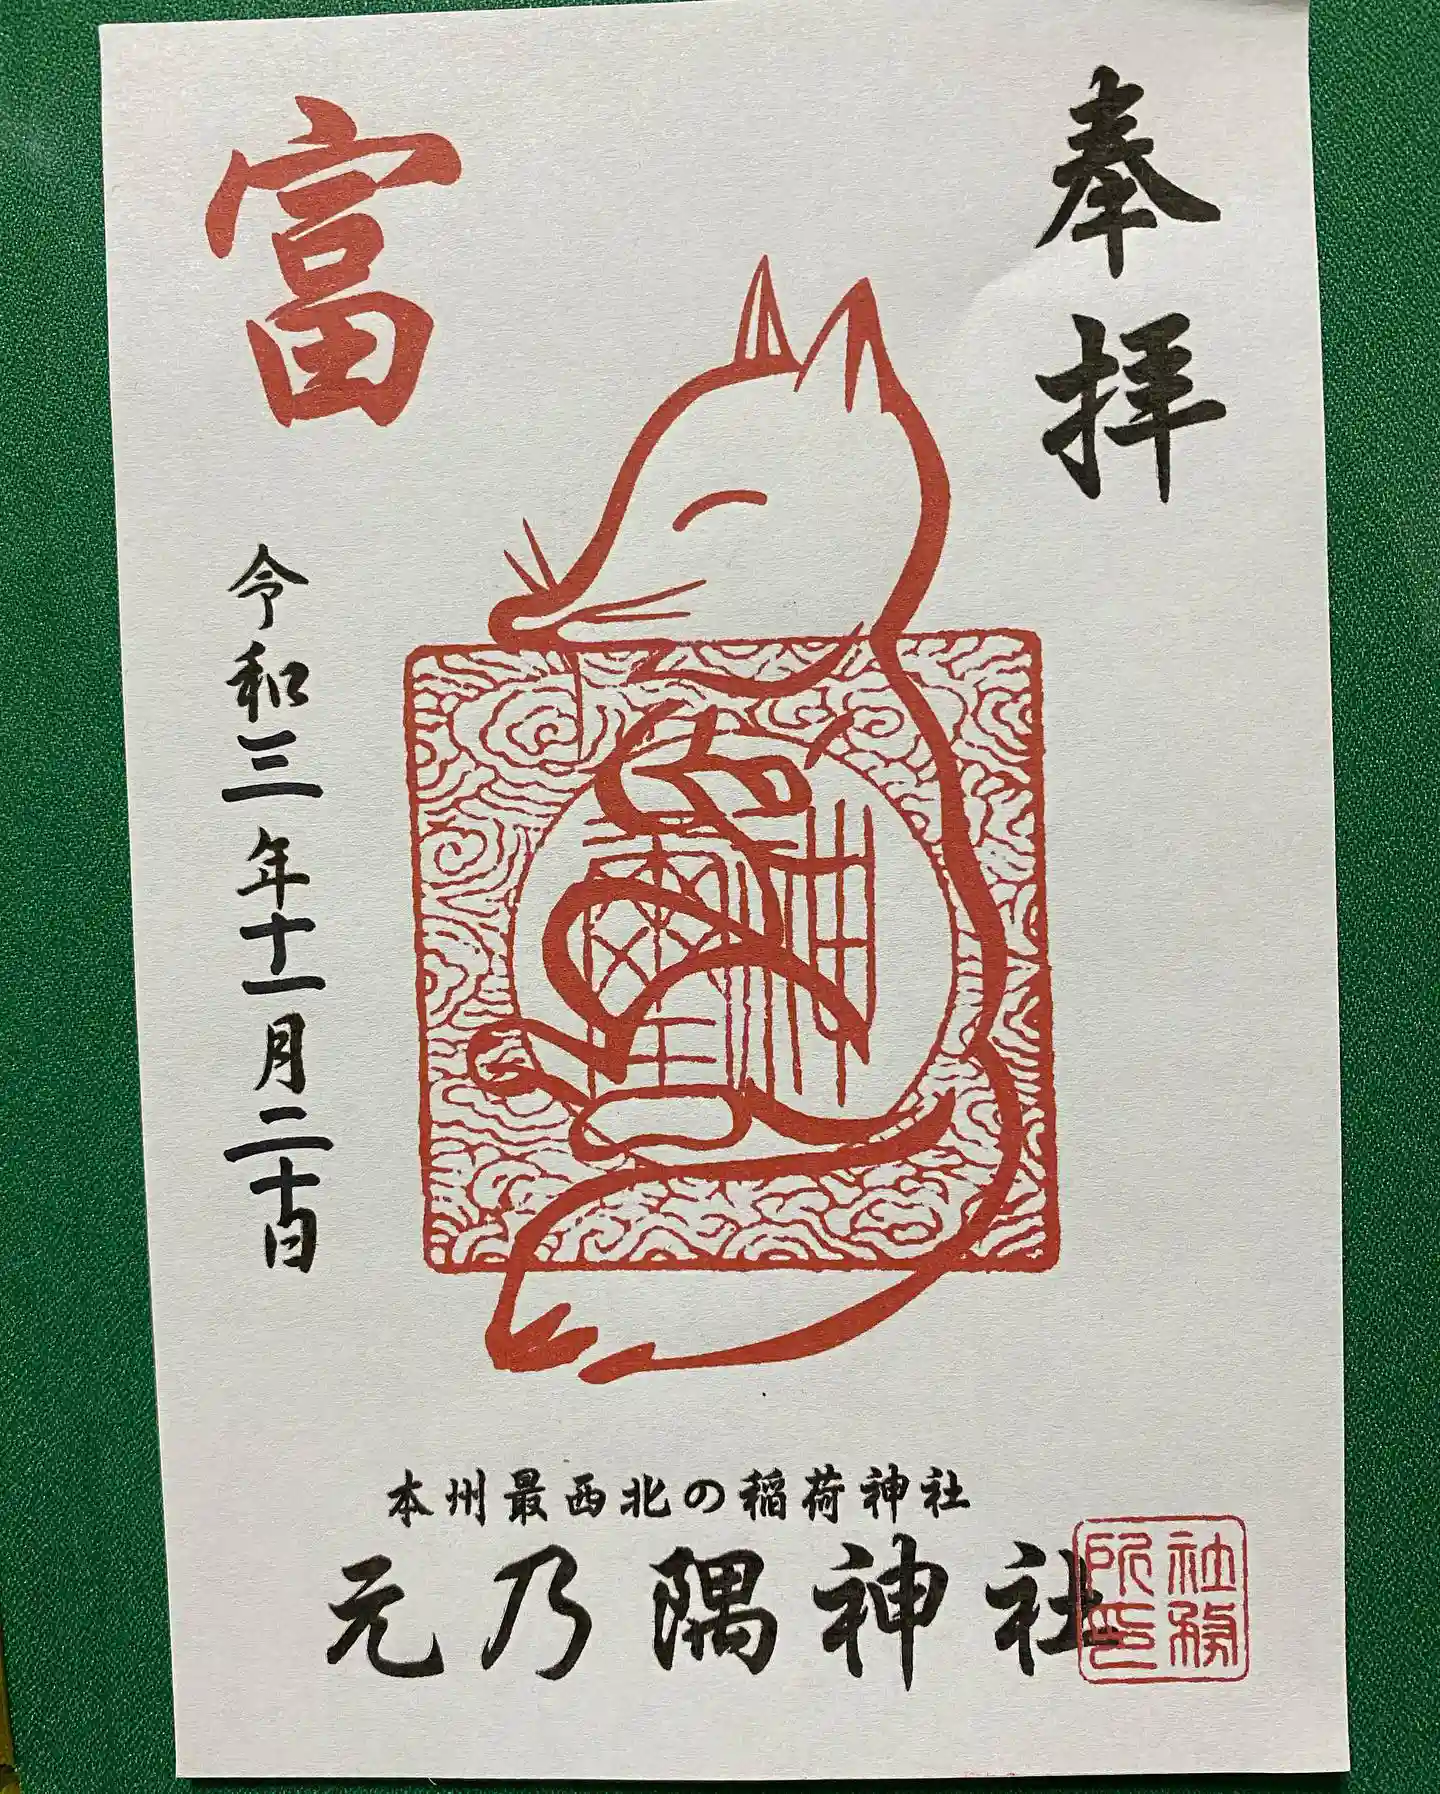 奉拝
富
令和三年十一月二十日
本州最西北の稲荷神社
元乃隅神社
社務
所印